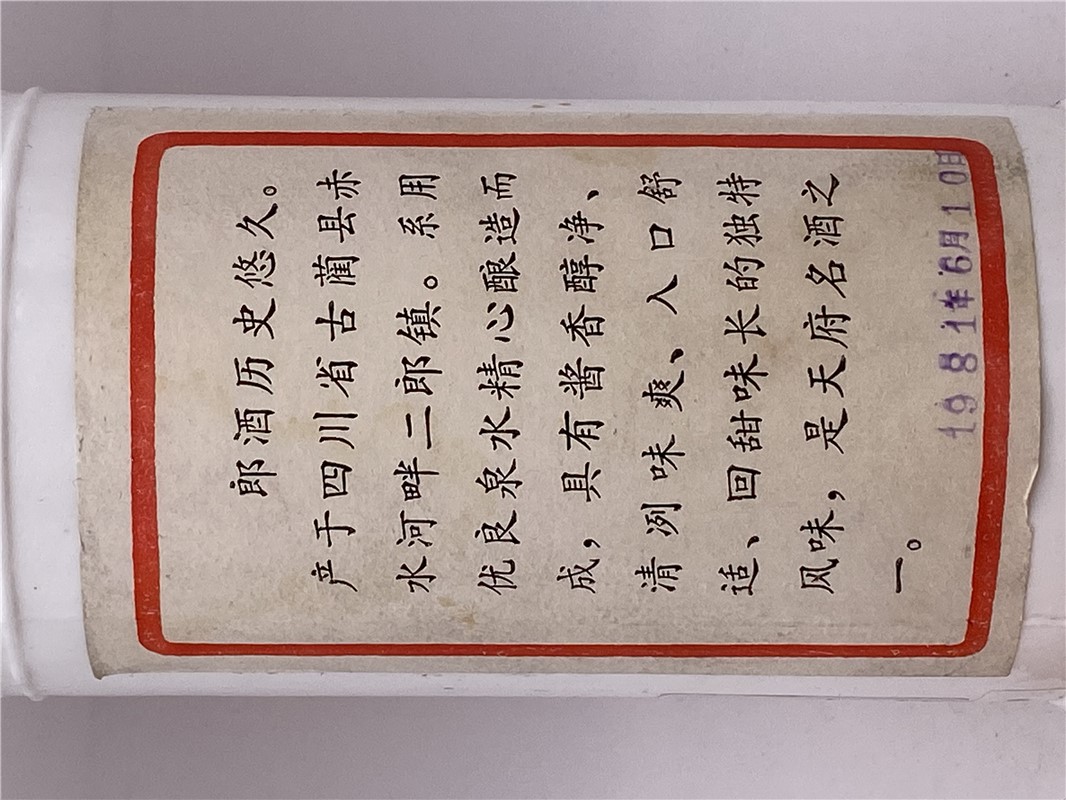 郎酒历史悠久。
产于四川省古蔺县赤
水河畔二郎镇。系用
优良泉水精心酿造而
成，具有酱香醇净、
清冽味爽、入口舒
适、回甜味长的独特
风味，是天府名酒之
一。
1981年6月10日